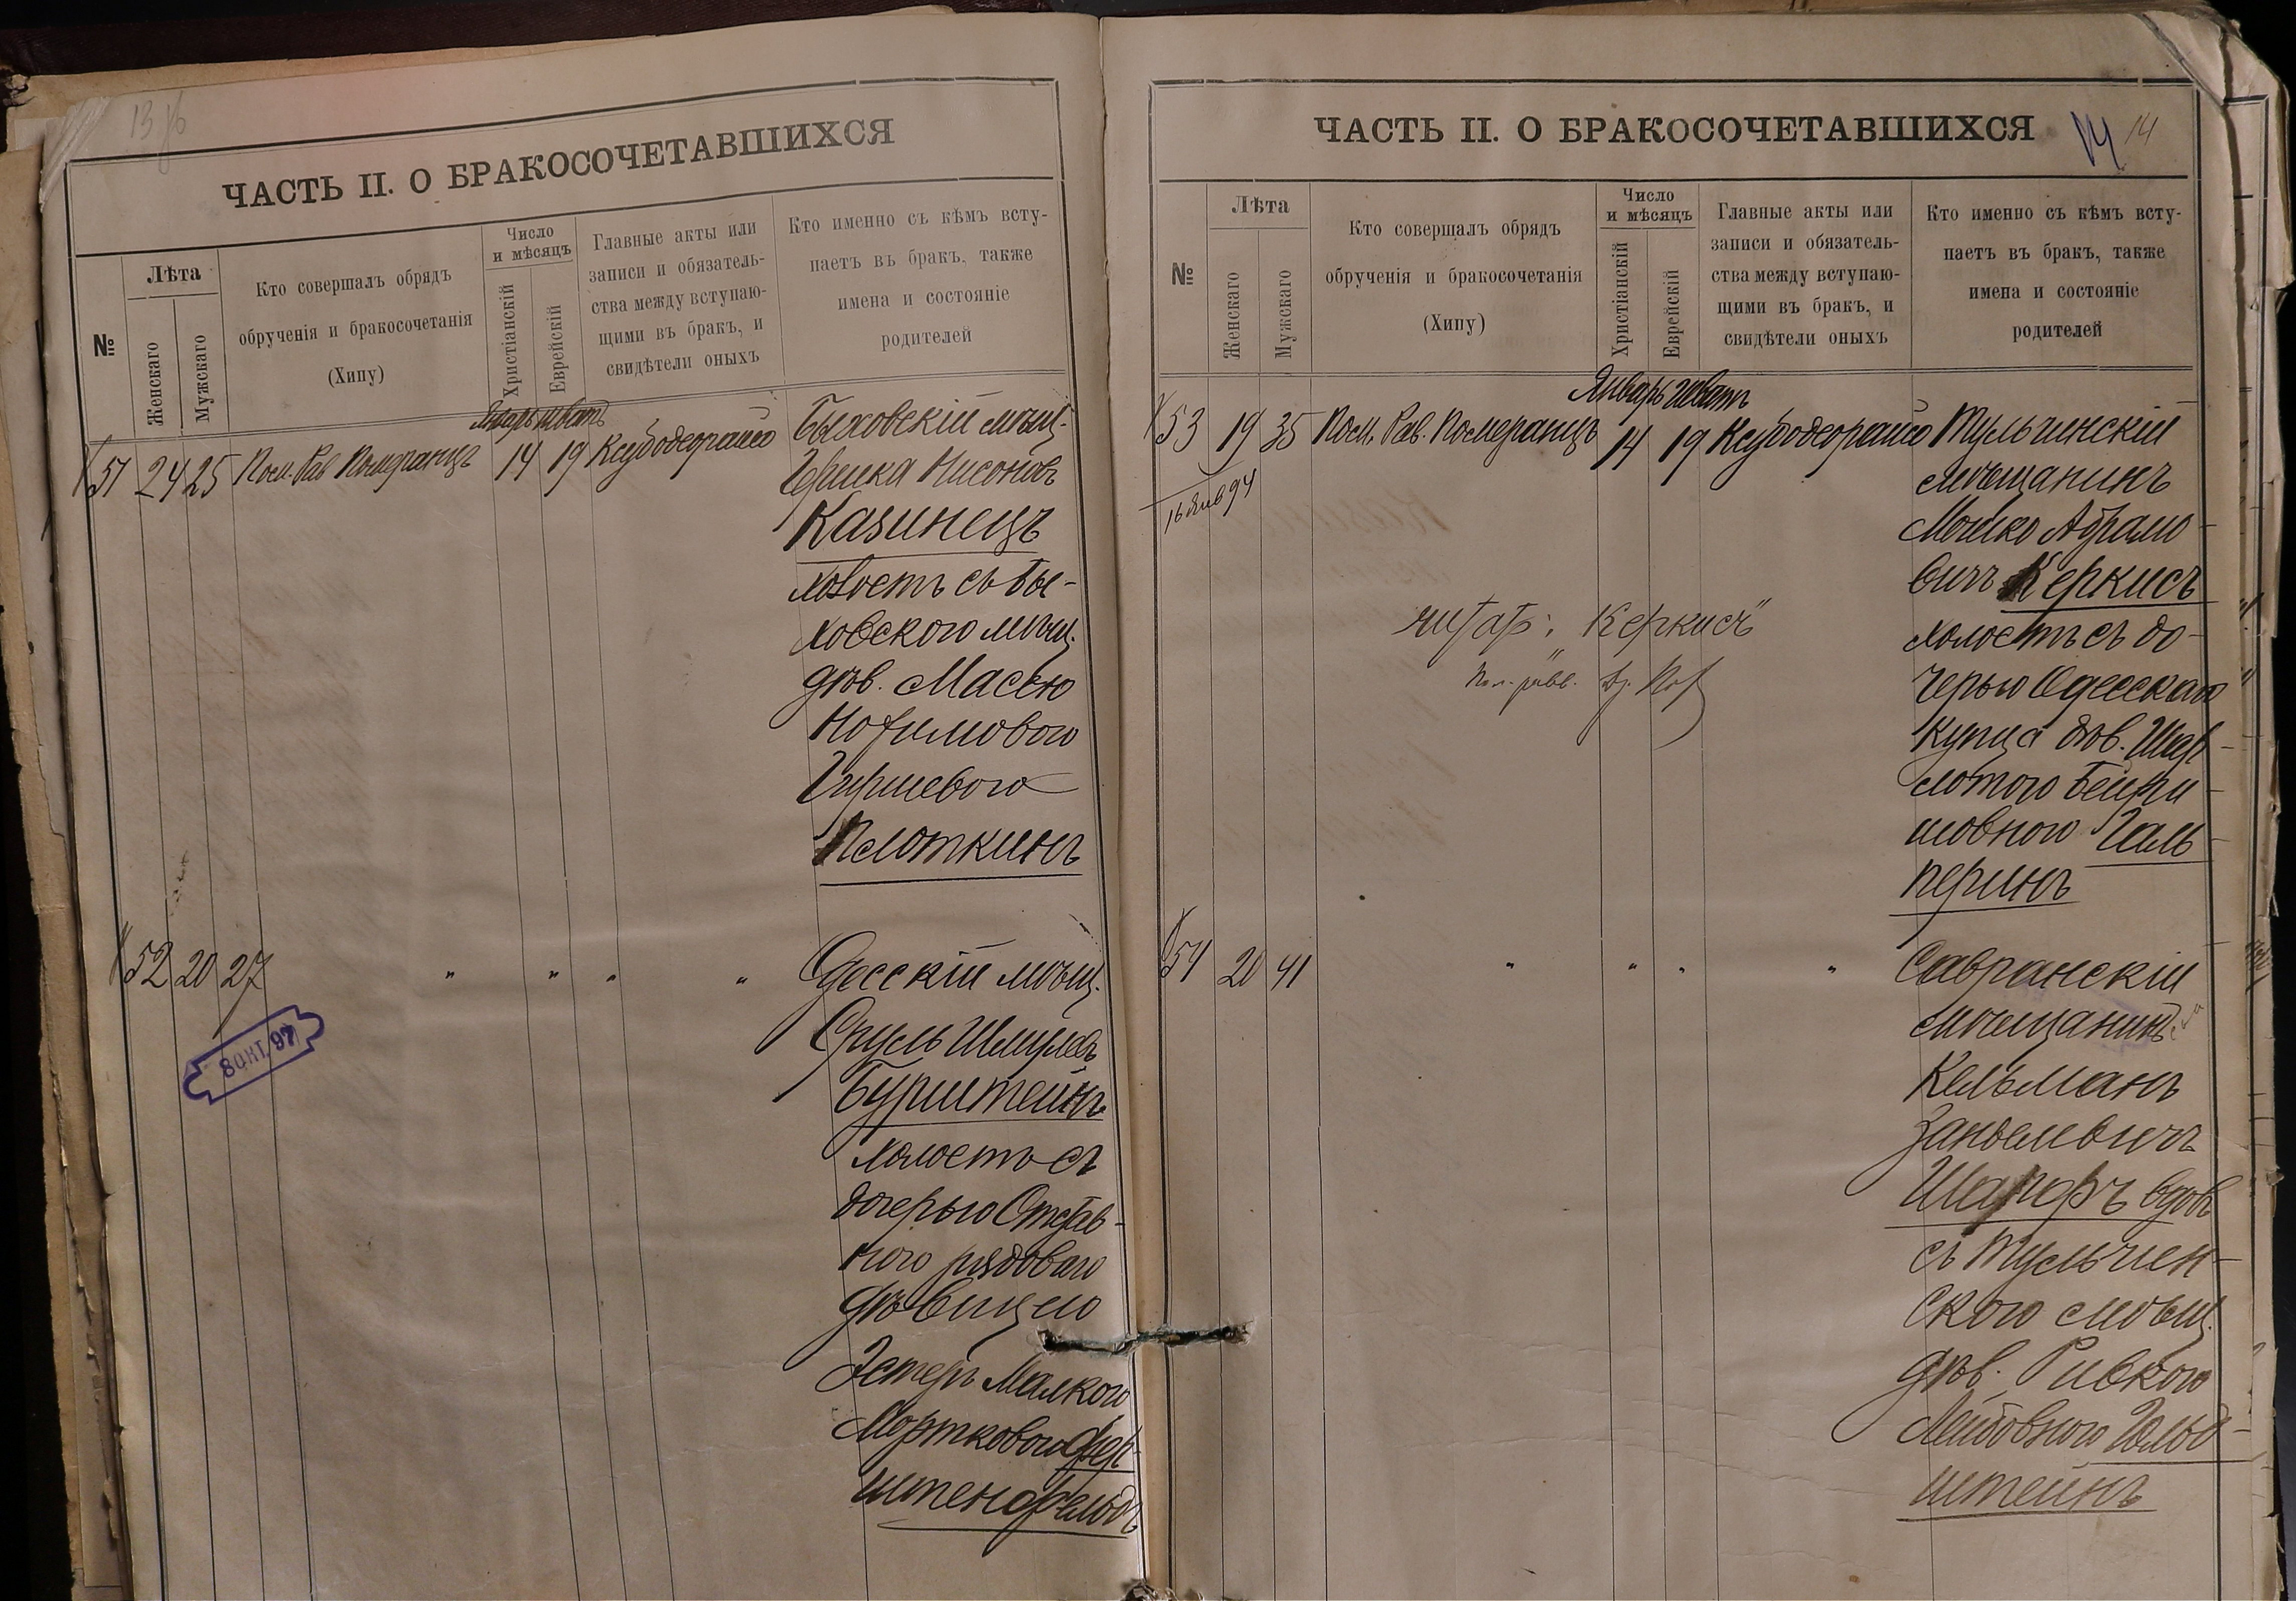 13 об
ЧАСТЬ II. О БРАКОСОЧЕТАВШИХСЯ
№
Лѣта
Женскаго
Мужскаго
Кто совершалъ обрядъ
обрученія и бракосочетанія
(Хипу)
Число
и мѣсяцъ
Христіанскій
Еврейскій
Главные акты или
записи и обязатель-
ства между вступаю-
щими въ бракъ, и
свидѣтели оныхъ
Кто именно съ кѣмъ всту-
паетъ въ бракъ, также
имена и состояніе
родителей
Январь шватъ
51 24 25 Пом. Рав Померанцъ 14 19 Ксубодеорайсо
Быховскій мѣщ.
Гершка Нисоновъ
Казинецъ
холостъ съ Бы-
ховского мѣщ.
дѣв. Масею
Нохимовою
Гиршевою
Плоткинъ
52 20 27 " " " "
Одесскій мѣщ.
Сруль Шмулев.
Бурштейнъ
холостъ съ
дочерью Отстав-
ного рядоваго
дѣвицею
Эстеръ Малкою
Мортковою Фер-
штенфельдъ
8 ОКТ. 97
ЧАСТЬ II. О БРАКОСОЧЕТАВШИХСЯ
14 14
№
Лѣта
Женскаго
Мужскаго
Кто совершалъ обрядъ
обрученія и бракосочетанія
(Хипу)
Число
и мѣсяцъ
Христіанскій
Еврейскій
Главные акты или
записи и обязатель-
ства между вступаю-
щими въ бракъ, и
свидѣтели оныхъ
Кто именно съ кѣмъ всту-
паетъ въ бракъ, также
имена и состояніе
родителей
Январь шватъ
53 19 35 Пом. Рав. Померанцъ 14 19 Ксубодеорайсо
16 Янв 94
Тульчинскій
мѣщанинъ
Мошко Абрамо-
вичъ Керкисъ
холостъ съ до-
черью Одесскаго
купца дѣв. Шар-
лотою Бейри-
шовною Галь-
перинъ
читать: "Керкисъ"
Пом. равв.
54 20 41 " " " "
Савранскій
мѣщанинъ
Кельманъ
Занвелевичъ
Шапфъ вдов.
съ Тульчин-
ского мѣщ.
дѣв. Ривкою
Лейбовною Гольд-
штейнъ